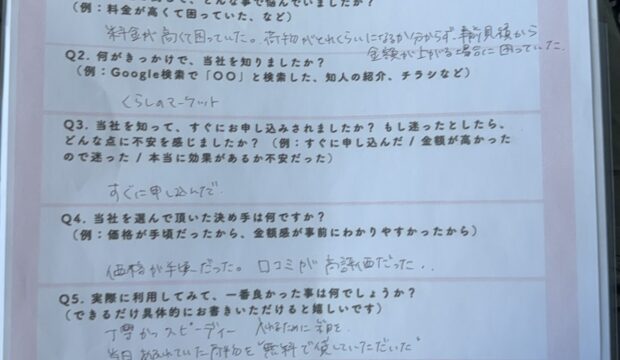 (例：料金が高くて困っていた、など)
料金が高くて困っていた。荷物がどれくらいになるか分からず、事前見積から
金額が上がる場合に困っていた。
Q2. 何がきっかけで、当社を知りましたか？
(例：Google検索で「〇〇」と検索した、知人の紹介、チラシなど)
くらしのマーケット
Q3. 当社を知って、すぐにお申し込みされましたか？ もし迷ったとしたら、
どんな点に不安を感じましたか？ (例：すぐに申し込んだ / 金額が高かった
ので迷った / 本当に効果があるか不安だった)
すぐに申し込んだ.
Q4. 当社を選んで頂いた決め手は何ですか？
(例：価格が手頃だったから、金額感が事前にわかりやすかったから)
価格が手頃だった。 口コミが高評価だった..
Q5. 実際に利用してみて、一番良かった事は何でしょうか？
(できるだけ具体的にお書きいただけると嬉しいです)
丁寧かつスピーディー 入れるために箱を
当日 あふれていた荷物を "無料で貸していただいた"